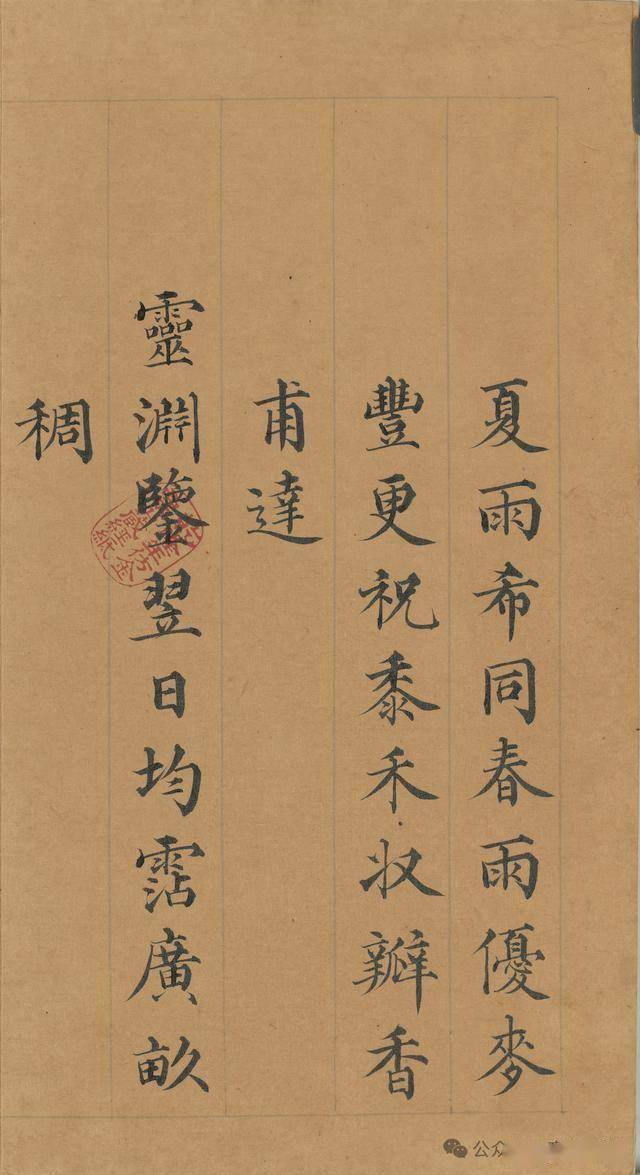 夏雨希同春雨優麥
豐更祝黍禾収瓣香
甫達
靈淵鑒翌日均霑廣畝
稠
公众